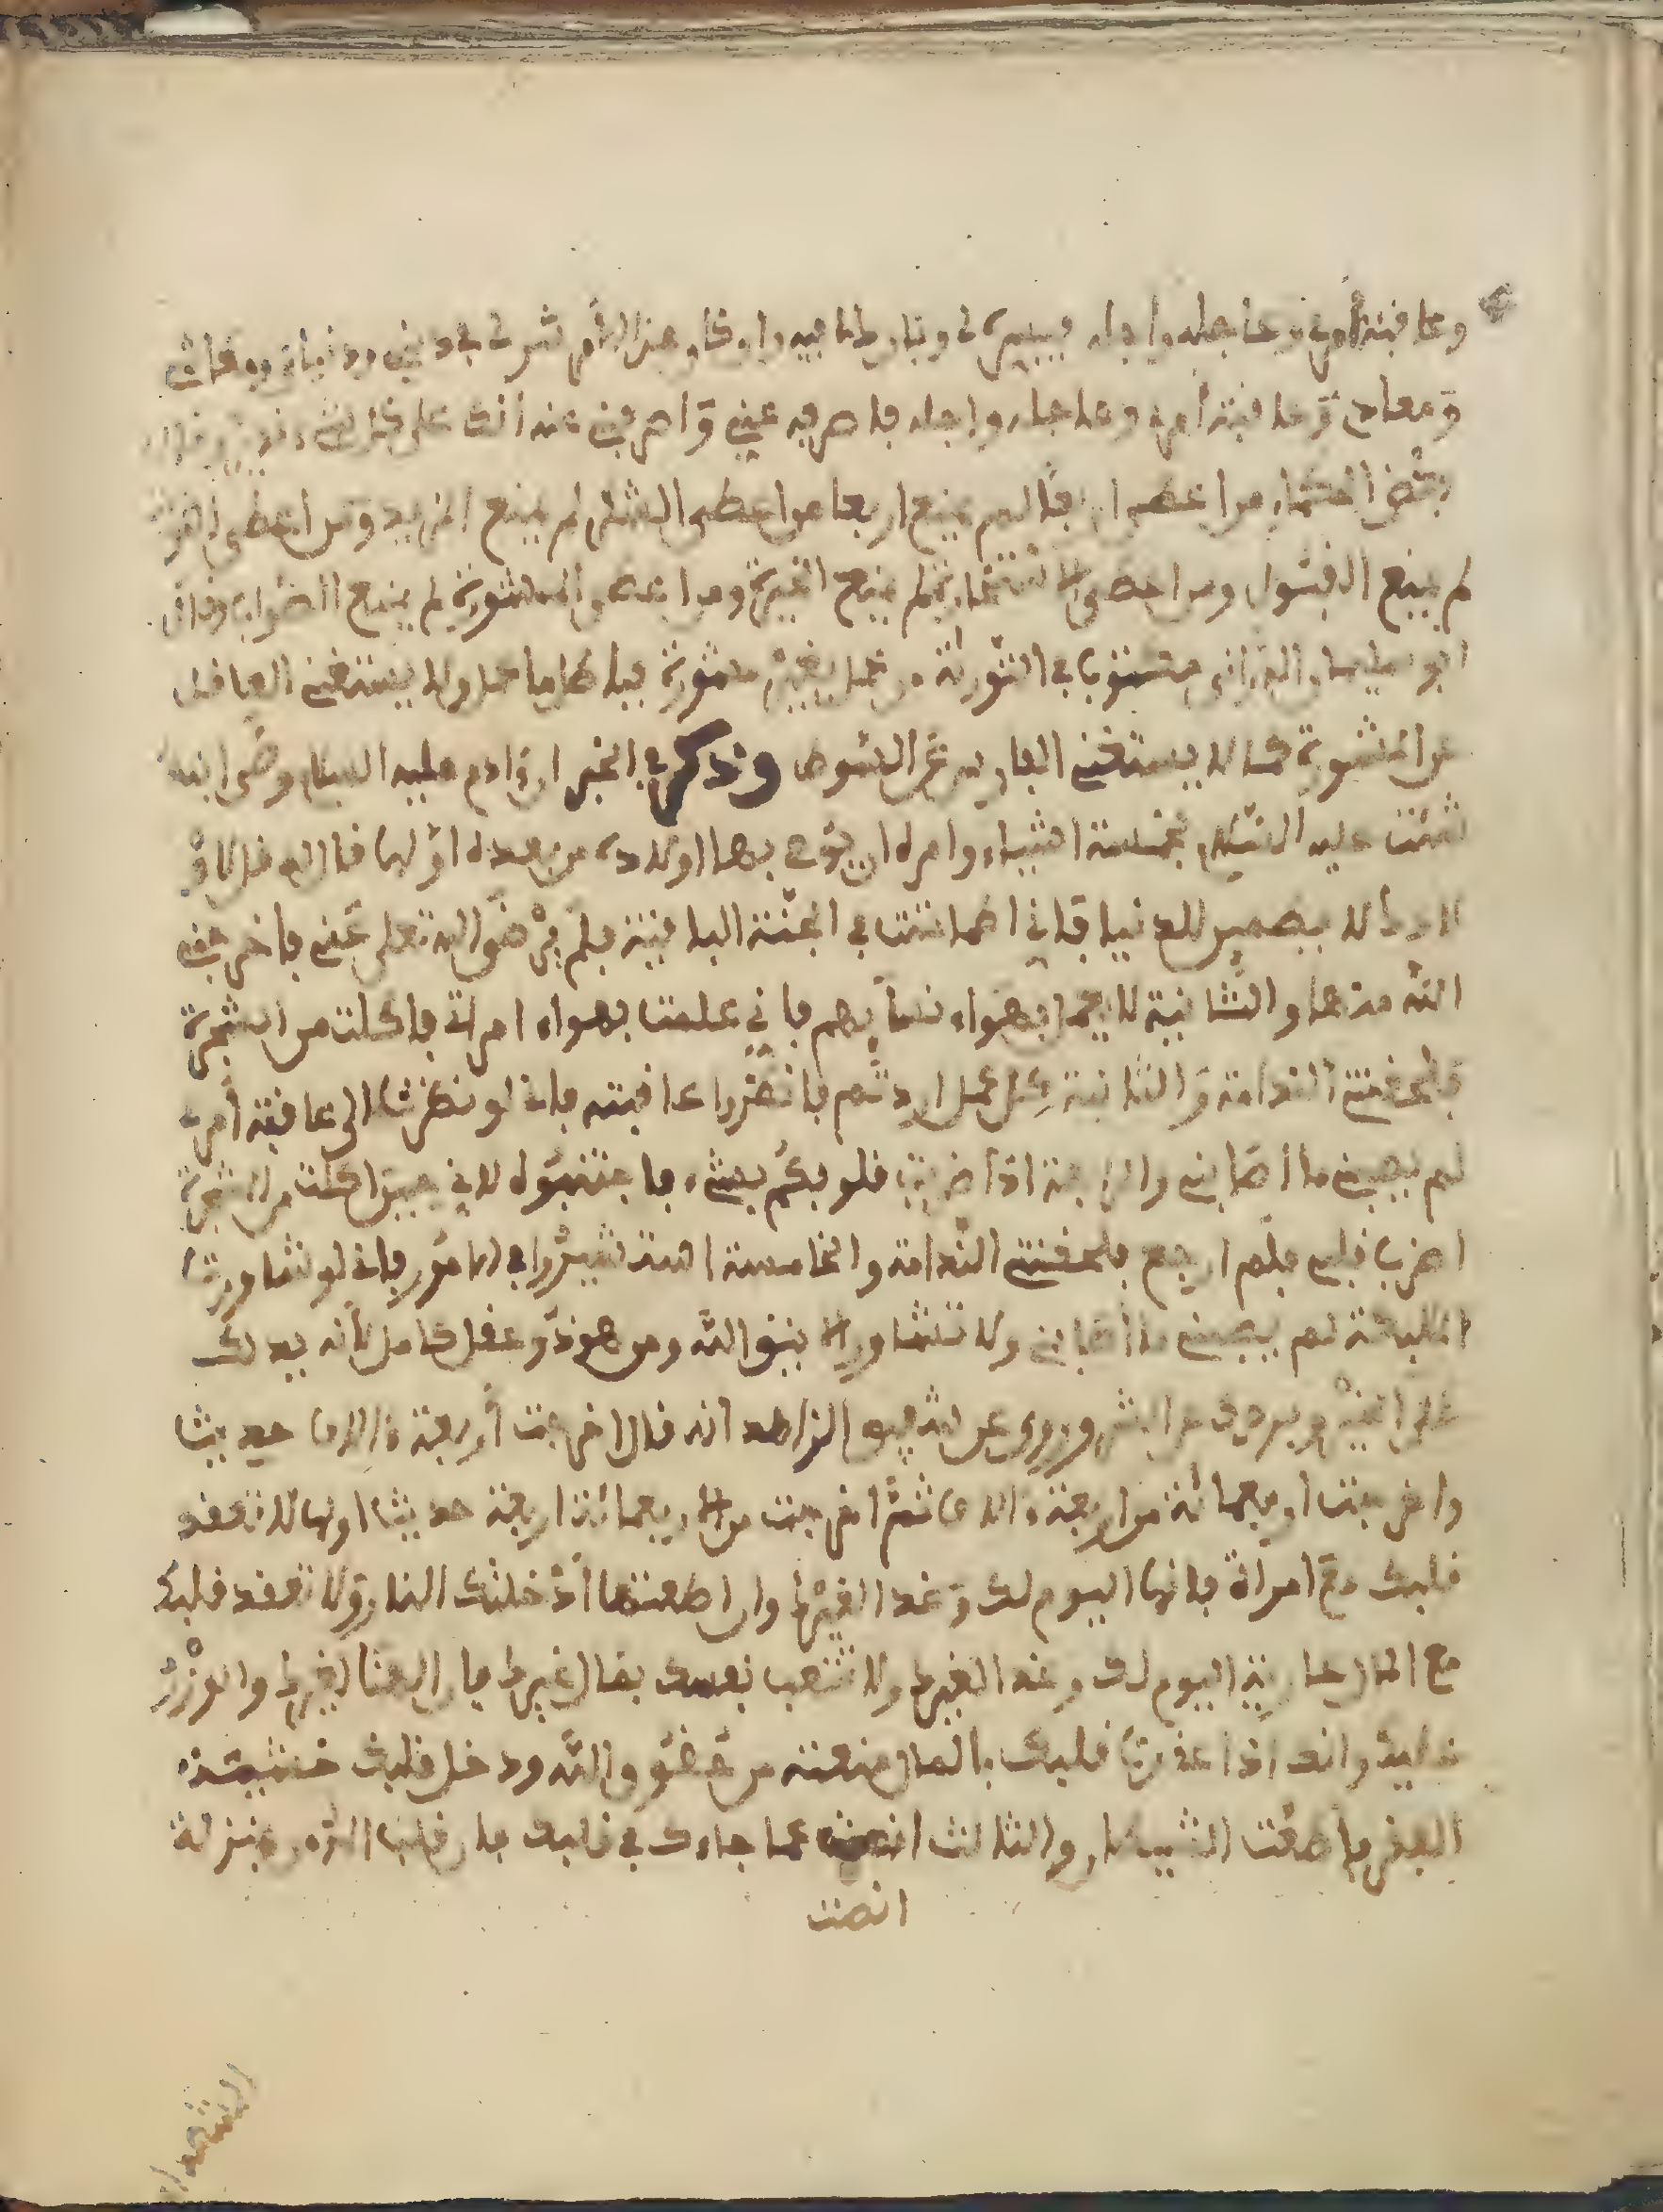 وعاقبة أمري وعاجله وآجله فيسره لي وبارك لنا فيه وإن كان هذا الأمر شر لي في ديني ودنياي ومعاش
ومعادي وعاقبة أمري وعاجله وآجله فاصرفه عني واصرفني عنه انك على كل شيء قدير وقال
بعض الحكماء من اعطي اربعا لم يمنع اربعا من اعطى الشكر لم يمنع المزيد ومن اعطى التوبة
لم يمنع القبول ومن اعطى الاستخارة لم يمنع الخيرة ومن اعطى المشورة لم يمنع الصواب وقال
ابو سليمان الداراني مكتوب في التورية من عمل بغير مشورة فباطل ما عمل ولا يستغني العاقل
عن المشورة كما لا يستغني الفارس عن السوط وذكر في الخبر ان آدم عليه السلام وصى ابنه
شيت عليه السلام بخمسة اشياء وامره ان يوصي بها اولاده من بعده اولها قال له قل لاو
لادك لا بصمير للدنيا فاني اطمأننت في الجنة الباقية فلم يرض الله تعلى عني فاخرجني
الله منها والثانية لا يعملوا بهواء نسائهم فاني علمت بهواء امرأتي فاكلت من الشجرة
فلحقتني الندامة والثالثة كل عمل اردتم فانظروا عاقبته فاني لو نظرت الى عاقبة أمري
لم يصبني ما أصابني والرابعة اذا ضربت قلوبكم بشيء فاجتنبوه لاني حين اكلت من الشجرة
اضرب قلبي فلم ارجع فلحقتني الندامة والخامسة استشيروا في الامور فاني لو شاورت
الملايكة لم يصبني ما أصابني ولا تشاور الا بتقو الله ومن هو ذو عقل كامل لأنه يدلك
على الخير ويردك عن الشر وروي عن شقيق الزاهد انه قال اخرجت أربعة ءالاف حديثا
واخرجت اربعمائة من اربعة ءالاف ثم اخرجت من الاربعمائة اربعة حديثا اولها لا تعقد
قلبك مع امرأة فانها اليوم لك وغدا لغيرك وان اطعتها أدخلتك النار ولا تعقد قلبك
مع المال عارية اليوم لك وغدا لغيرك ولا تتعب نفسك بمال غيرك فان المهنا لغيرك والوزر
عليك وانك اذا عقدت قلبك بالمال منعته من حقوق الله ودخل قلبك خشية
الفقر فاطعت الشيطان والثالث اتركه عما جاءك في قلبك فان قلب المؤمن بمنزلة
انصت